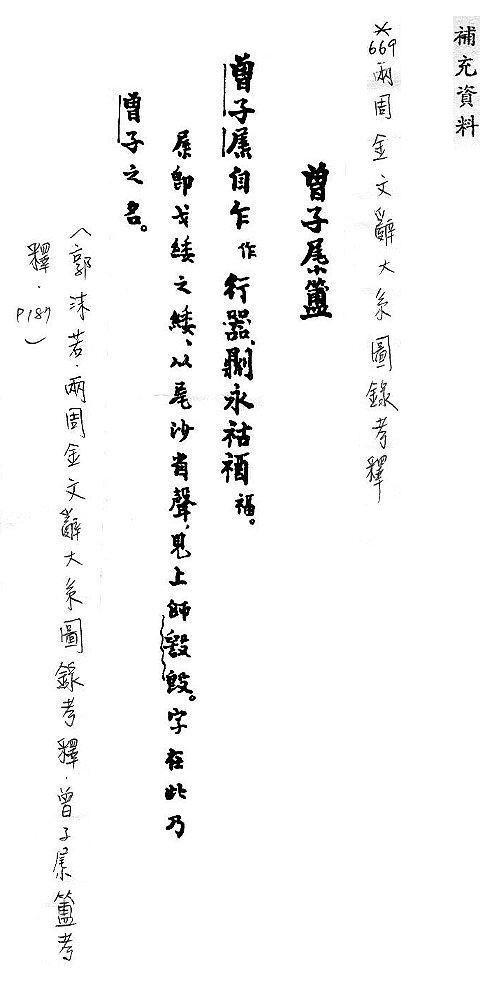 補充資料
※669兩周金文辭大系圖錄考釋
曾子㞑簠
曾子㞑自乍作行器、劓永祜福。
㞑即戈緌之緌、以尾沙省聲、見上師㲃𣪘。字在此乃
曾子之名。
(郭沫若.兩周金文辭大系圖錄考釋.曾子㞑簠考
釋.P187)